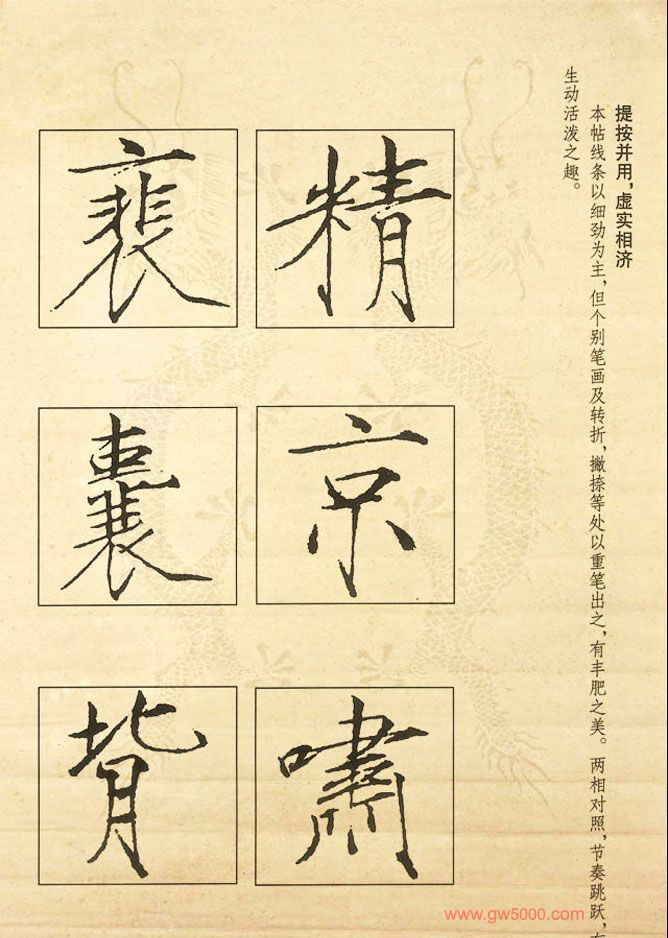 提按并用，虚实相济
本帖线条以细劲为主，但个别笔画及转折，撇捺等处以重笔出之，有丰肥之美。两相对照，节奏跳跃，
生动活泼之趣。
精
京
嘯
裵
囊
背
www.gw5000.com